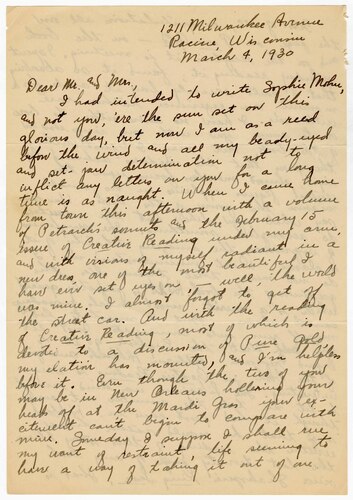 1211 Milwaukee Avenue
Racine, Wisconsin
March 4, 1930
Dear Mr. and Mrs.,
I had intended to write Sophie Mohr,
and not you, 'ere the sun set on this
glorious day, but now I am as a reed
before the wind and all my beady-eyed
and set-jaw determination not to
inflict any letters on you for a long
time is as naught. When I came home
from town this afternoon with a volume
of Petrarch's sonnets and the February 15
issue of Creative Reading under my arm,
and with visions of myself radiant in a
new dress, one of the most beautiful I
have ever set eyes on, well, the world
was mine. I almost forgot to get off
the street car. And with the reading
of Creative Reading, most of which is
devoted to a discussion of Pure Gold,
my elation has mounted, and I'm helpless
before it. Even though the two of you
may be in New Orleans hollering your
heads off at the Mardi Gras your ex-
citement can't begin to compare with
mine. Someday I suppose I shall rue
my want of restraint, life seeming to
have a way of taking it out of one